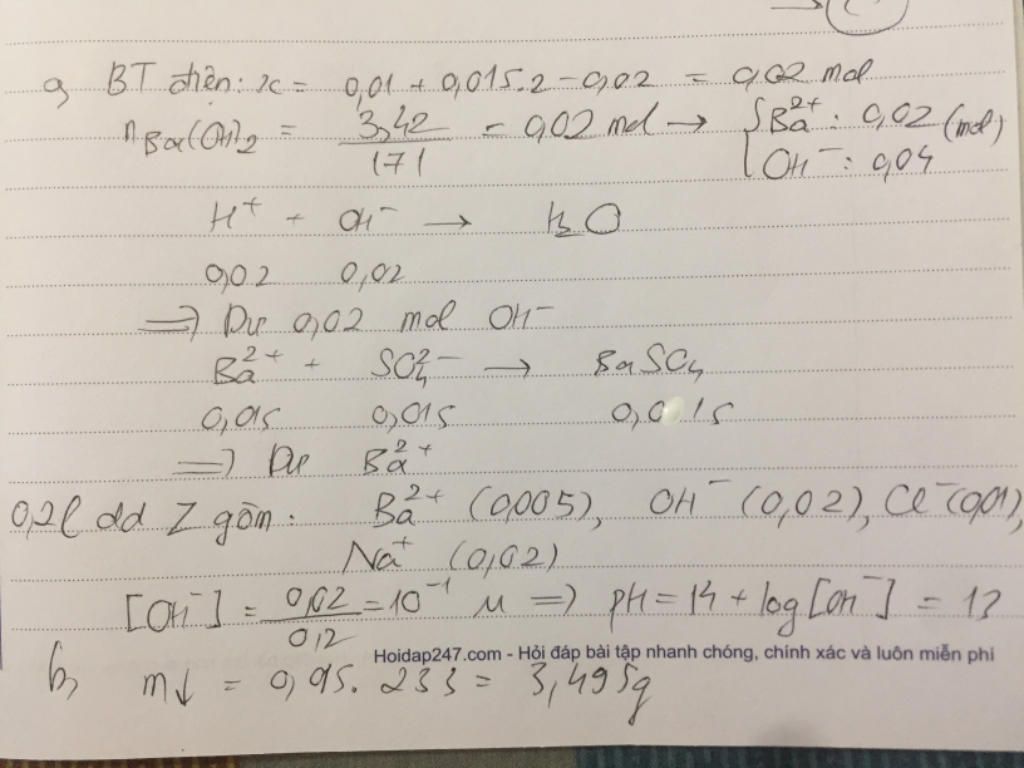 a, BT điện: x = 0,01 + 0,015.2 - 0,02 = 0,02 mol
nBa(OH)2 = 3,42/171 = 0,02 mol → { Ba2+ : 0,02 (mol)
OH- : 0,04
H+ + OH- → H2O
0,02 0,02
=> Dư 0,02 mol OH-
Ba2+ + SO42- → BaSO4
0,015 0,015 0,015
=> Dư Ba2+
0,2l dd Z gồm: Ba2+ (0,005), OH- (0,02), Cl- (0,01),
Na+ (0,02)
[OH-] = 0,02/0,2 = 10-1 M => pH = 14 + log[OH-] = 13
Hoidap247.com - Hỏi đáp bài tập nhanh chóng, chính xác và luôn miễn phí
b, m↓ = 0,015. 233 = 3,495g